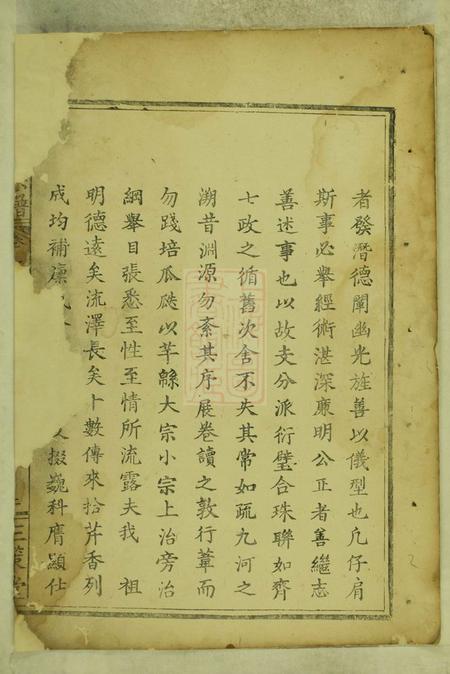 者發潛德闡幽光旌善以儀型也凡仔肩
斯事必舉經術湛深廉明公正者善繼志
善述事也以故支分派衍璧合珠聯如齊
七政之循舊次舍不失其常如疏九河之
溯昔淵源勿紊其序展卷讀之敦行葦而
勿踐培瓜瓞以芊緜大宗小宗上治旁治
綱舉目張悉至性至情所流露夫我 祖
明德遠矣流澤長矣卜數傳來拾芹香列
成均補廩
掇巍科膺顯仕
譜
三策堂